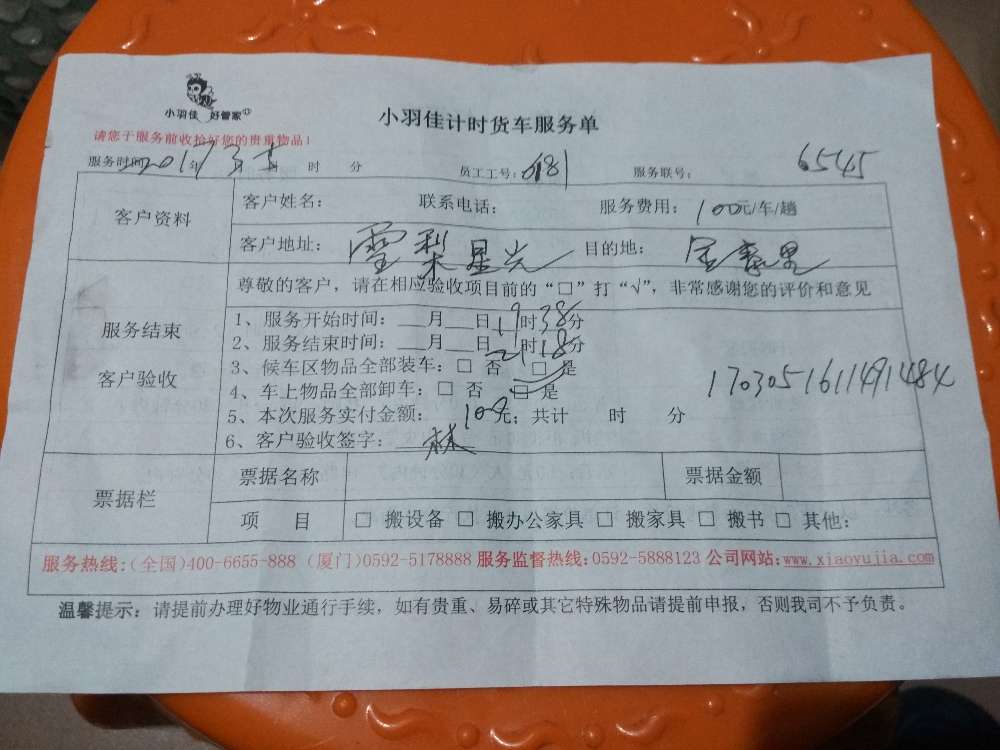 小羽佳 好管家
小羽佳计时货车服务单
请您于服务前收拾好您的贵重物品!
服务时间:2017年3月5日 时 分 员工工号:681 服务联号: 6545
客户资料
客户姓名: 联系电话: 服务费用: 100元/车/趟
客户地址: 雪梨星光 目的地: 金泰里
服务结束
客户验收
尊敬的客户,请在相应验收项目前的“□”打“√”,非常感谢您的评价和意见
1、服务开始时间:___月___日19时38分
2、服务结束时间:___月___日21时18分
3、候车区物品全部装车:□ 否 □ 是
4、车上物品全部卸车:□ 否 □ 是
1703051611491484
5、本次服务实付金额: 100元;共计 时 分
6、客户验收签字: 林
票据栏
票据名称 票据金额
项 目 □ 搬设备 □ 搬办公家具 □ 搬家具 □ 搬书 □ 其他:
服务热线:(全国)400-6655-888 (厦门)0592-5178888 服务监督热线:0592-5888123 公司网站:www.xiaoyujia.com
温馨提示:请提前办理好物业通行手续,如有贵重、易碎或其它特殊物品请提前申报,否则我司不予负责。